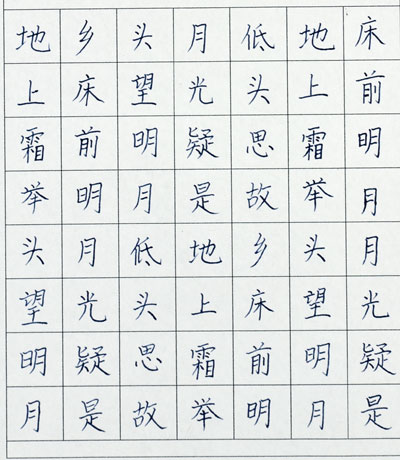 床前明月月光疑是
地上霜举头望明月
低头思故乡床前明
月光疑是地上霜举
头望明月低头思故
乡床前明月光疑是
地上霜举头望明月